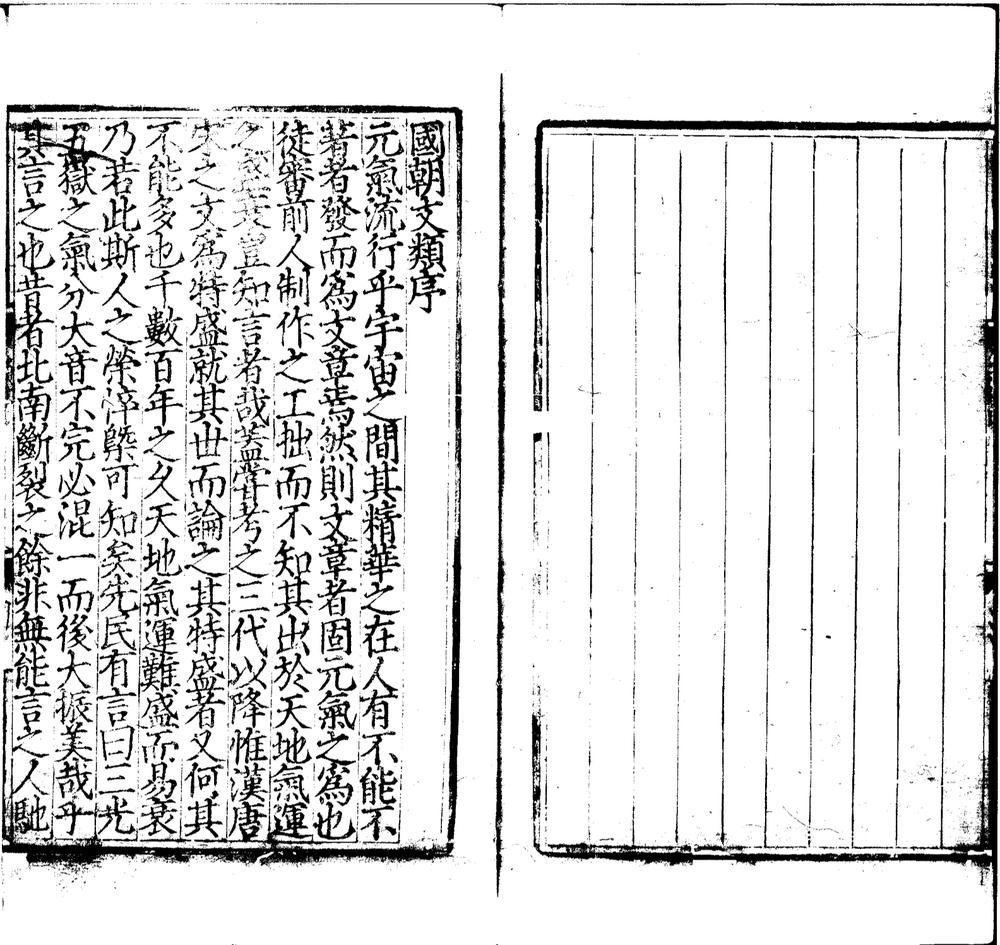 國朝文類序
元氣流行乎宇宙之間其精華之在人有不能不
著者發而爲文章焉然則文章者固元氣之爲也
徒審前人制作之工拙而不知其出於天地氣運
之盛衰豈知言者哉蓋嘗考之三代以降惟漢唐
宋之文爲特盛就其世而論之其特盛者又何其
不能多也千數百年之久天地氣運難盛而易衰
乃若此斯人之榮悴槩可知矣先民有言曰三光
五嶽之氣分大音不完必混一而後大振美哉乎
其言之也昔者北南斷裂之餘非無能言之人馳